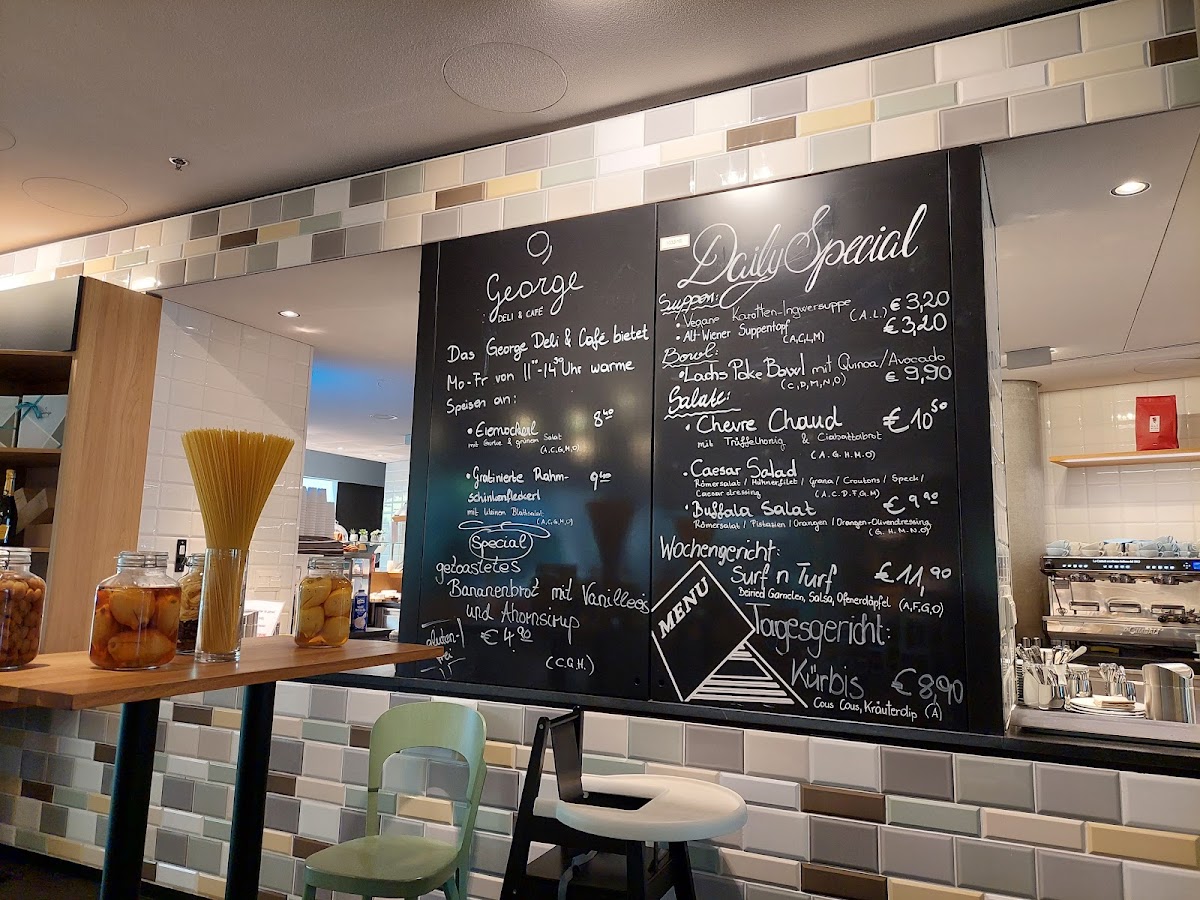 George
DELI & CAFÉ
Das George Deli & Café bietet
Mo-Fr von 11⁰⁰-14³⁰ Uhr warme
Speisen an:
• Eiernockerl 8⁴⁰
mit Gurke & grünem Salat
(A,C,G,M,O)
• Gratinierte Rahm- 9⁴⁰
schinkenfleckerl
mit kleinem Blattsalat
(A,C,G,M,O)
Special
geroastetes
Bananenbrot mit Vanilleeis
und Ahornsirup
gluten-
frei
€ 4,⁹⁰
(C.G.H.)
Daily Special
Suppen:
• Vegane Karotten-Ingwersuppe (A.L.) € 3,20
• Alt-Wiener Suppentopf € 3,20
(A,C,L,M)
Bowl:
• Lachs Poke Bowl mit Quinoa/Avocado
(C,D,M,N,O) € 9,90
Salate:
• Chevre Chaud € 10⁵⁰
mit Trüffelhonig & Ciabattabrot
(A.G.H.M.O)
• Caesar Salad
Römersalat / Hühnerfilet / Grana / Croutons / Speck /
Caesar dressing (A.C.D.F.G.M)
• Buffala Salat € 9⁹⁰
Römersalat / Pistazien / Orangen / Orangen-Olivendressing
(G.H.M.N.O)
Wochengericht:
Surf n Turf € 11,⁹⁰
Beiried Garnelen, Salsa, Ofenerdäpfel (A,F,G,O)
MENU
Tagesgericht:
Kürbis € 8,90
Cous Cous, Kräuterdip (A)